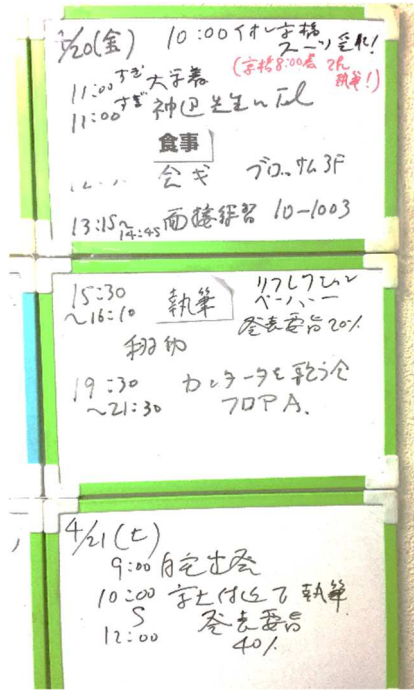 /20(金) 10:00 イオン京橋
スーツ受取!
(京橋8:00着
執筆!)
11:00すぎ 大学着
11:00すぎ 神辺先生へTel
食事
会ギ ブロッサム3F
13:15〜14:45 面接練習 10-1003
15:30〜16:10 執筆 リフレクション
ペーパー
発表要旨20%
19:30 カンタータを歌う会
〜21:30 フロアA.
4/21(土)
9:00 自宅出発
10:00 付近で執筆
〜
12:00 発表要旨
40%